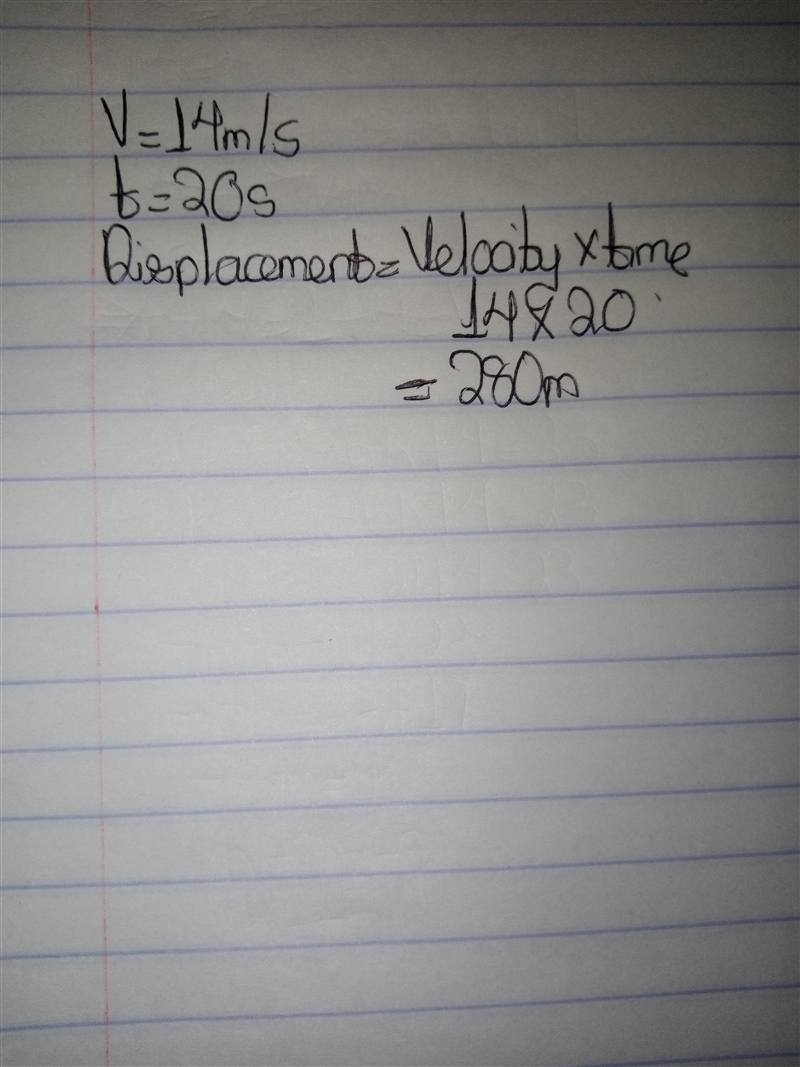 V=14m/s
t=20s
Displacement=Velocity x time
14x20
= 280m